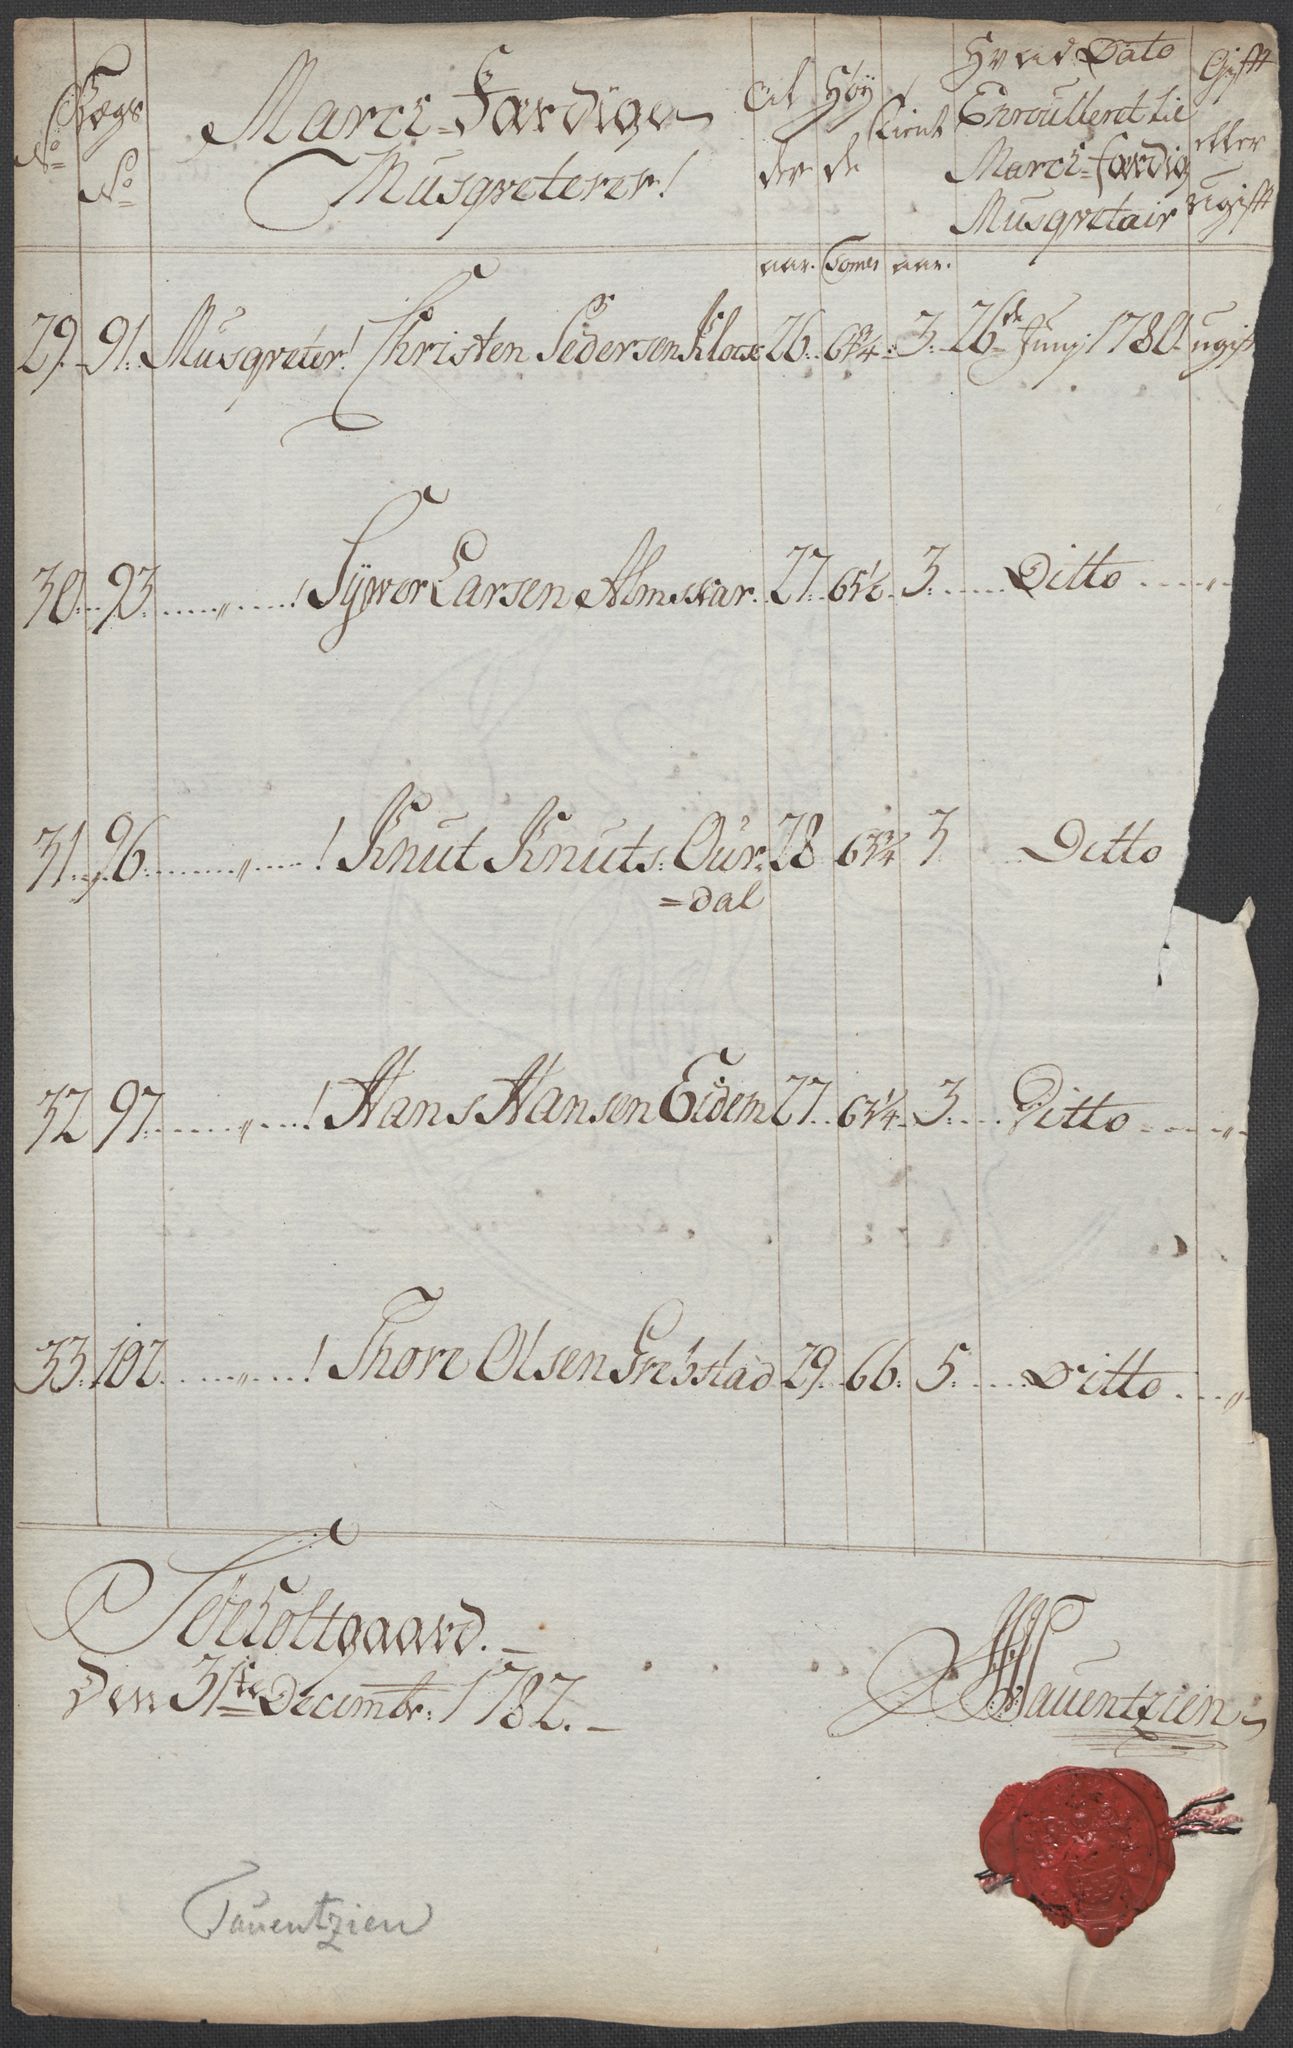 No Lægs No March-færdige Musqveterer! Alder Høyde Tient Hvad Dato Enroulleret til March-færdig Musqvetair Gift eller ugift
aar. Tomer aar.
29. 91. Musqveter! Christen Pedersen Klocs 26. 63/4. 3. 26de Junj 1780 ugift
30. 93. „ ! Sÿver Larsen Almskar. 27. 65 1/2. 3. Ditto „
31. 96. „ ! Knut Knuts: Our: 28 65 3/4 3 Ditto
=dal
32 97. „ ! Hans Hansen Eidem 27. 65 1/4. 3. Ditto „
33. 102. „ ! Thore Olsen Grebstad 29. 66. 5. Ditto „
Søeholtgaard.
Den 31te Decembr: 1782.
Tauentzien
Tauentzien